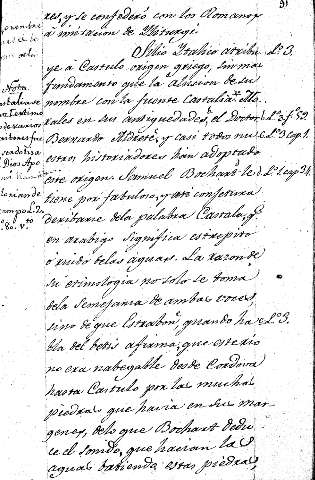 91
res, y se confederó con los Romanos
a imitacion de Yliturgi.
Silio Italico atribu L.º 3.
ye a Castulo origen griego, sin mas
fundamento que la alusion de su
nombre con la fuente Castalia. Mo.
rales en sus antiguedades, el Doctor
Bernardo Aldrete, y casi todos nu
estros historiadores han adoptado
este origen. Samuel Bochart le
tiene por fabuloso, y conjetura
derivarse de la palabra Castalo, q.e
en arabigo significa estrepito
ó ruido de las aguas. La razon de
su etimologia no solo se toma
de la Semejansa de ambas voces,
sino de que Estrabon, quando ha L.º 3.
bla del betis afirma, que este rio
no era nabegable desde Cordova
hasta Castulo por las muchas
piedras que havia en sus mar
genes, de lo que Bochart dedu
ce el sonido, que hacian las
aguas batiendo estas piedras,
Nota